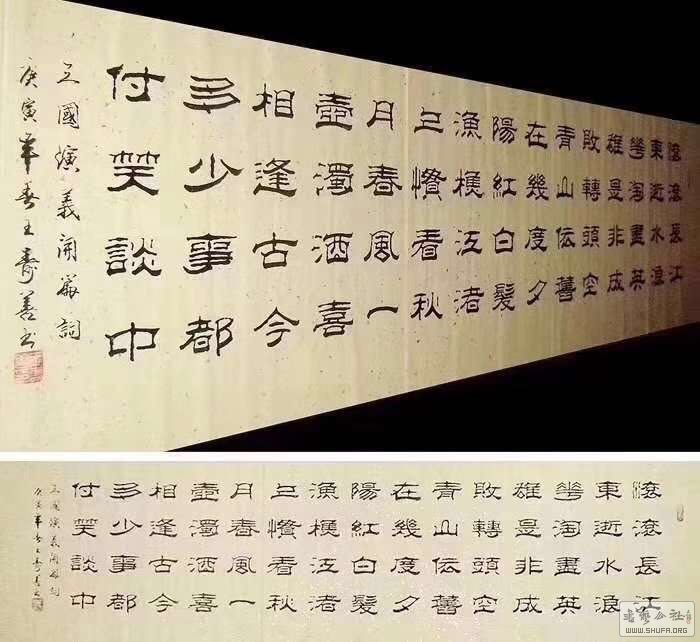 滾滾長江
東逝水浪
華淘盡英
雄是非成
敗轉頭空
青山依舊
在幾度夕
陽紅白髮
漁樵江渚
上慣看秋
月春風一
壺濁酒喜
相逢古今
多少事都
付笑談中
三國演義開篇詞
庚寅年春王壽善书
滾滾長江
東逝水浪
華淘盡英
雄是非成
敗轉頭空
青山依舊
在幾度夕
陽紅白髮
漁樵江渚
上慣看秋
月春風一
壺濁酒喜
相逢古今
多少事都
付笑談中
三國演義開篇詞
庚寅年春王壽善书
WWW.SHUFA.ORG